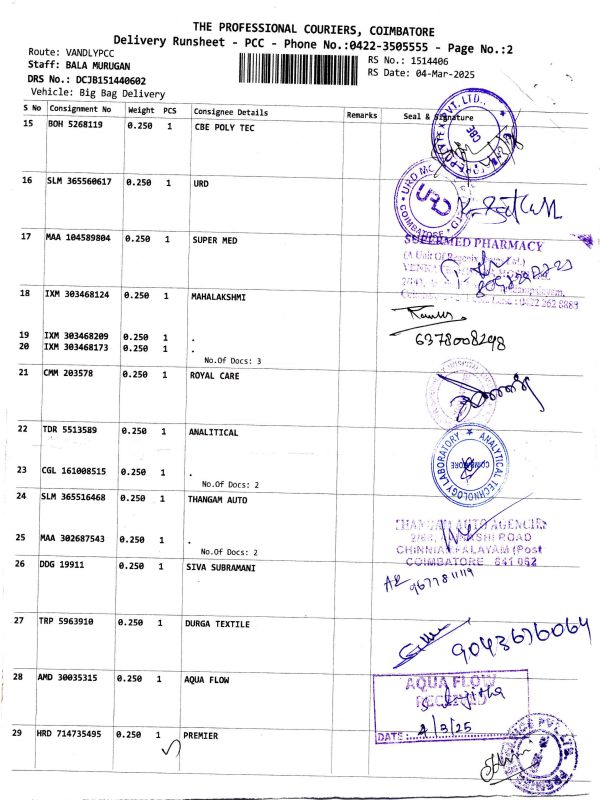 THE PROFESSIONAL COURIERS, COIMBATORE
Delivery Runsheet - PCC - Phone No.:0422-3505555 - Page No.:2
Route: VANDLYPCC
Staff: BALA MURUGAN
DRS No.: DCJB151440602
Vehicle: Big Bag Delivery
RS No.: 1514406
RS Date: 04-Mar-2025
S No Consignment No Weight PCS Consignee Details Remarks Seal & Signature
15 BOH 5268119 0.250 1 CBE POLY TEC
CBE
16 SLM 365560617 0.250 1 URD
URD
COIMBATORE
17 MAA 104589804 0.250 1 SUPER MED
SUPERMED PHARMACY
0422 262 8889
18 IXM 303468124 0.250 1 MAHALAKSHMI
6378008298
19 IXM 303468209 0.250 1 .
20 IXM 303468173 0.250 1 .
No.Of Docs: 3
21 CMM 203578 0.250 1 ROYAL CARE
22 TDR 5513589 0.250 1 ANALITICAL
ANALYTICAL TECHNOLOGY LABORATORY
COIMBATORE
23 CGL 161008515 0.250 1 .
No.Of Docs: 2
24 SLM 365516468 0.250 1 THANGAM AUTO
THANGAM AUTO AGENCIES
ROAD
CHINNIAMPALAYAM (Post
COIMBATORE 641 062
25 MAA 302687543 0.250 1 .
No.Of Docs: 2
26 DDG 19911 0.250 1 SIVA SUBRAMANI
27 TRP 5963910 0.250 1 DURGA TEXTILE
9043676064
28 AMD 30035315 0.250 1 AQUA FLOW
AQUA FLOW
RECEIVED
DATE: 4/3/25
29 HRD 714735495 0.250 1 PREMIER